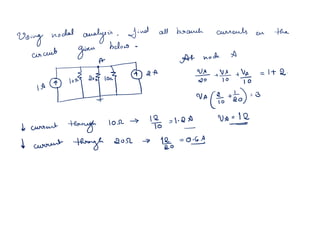 Using nodal analysis. find all branch currents in the
circuit given below.
A
1A 10Ω 20Ω 10Ω 2A
At node A
VA/20 + VA/10 + VA/10 = 1+2
VA(2/10 + 1/20) = 3
VA = 12
↓ current through 10Ω → 12/10 = 1.2A
↓ current through 20Ω → 12/20 = 0.6A